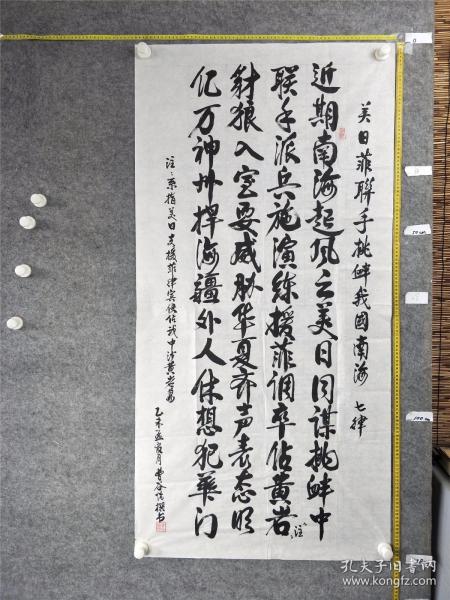 美日菲联手挑衅我国南海 七律
近期南海起风云美日同谋挑衅中
联手派兵施演练援菲倜卒佔黄岩 注
豺狼入室耍威胁华夏齐声表态明
亿万神州捍海疆外人休想犯华门
注：系指美日支援菲律宾侵佔我中沙黄岩岛
乙未孟夏月曹谷信撰书
50 cm
100 cm
孔夫子旧书网
www.kongfz.com